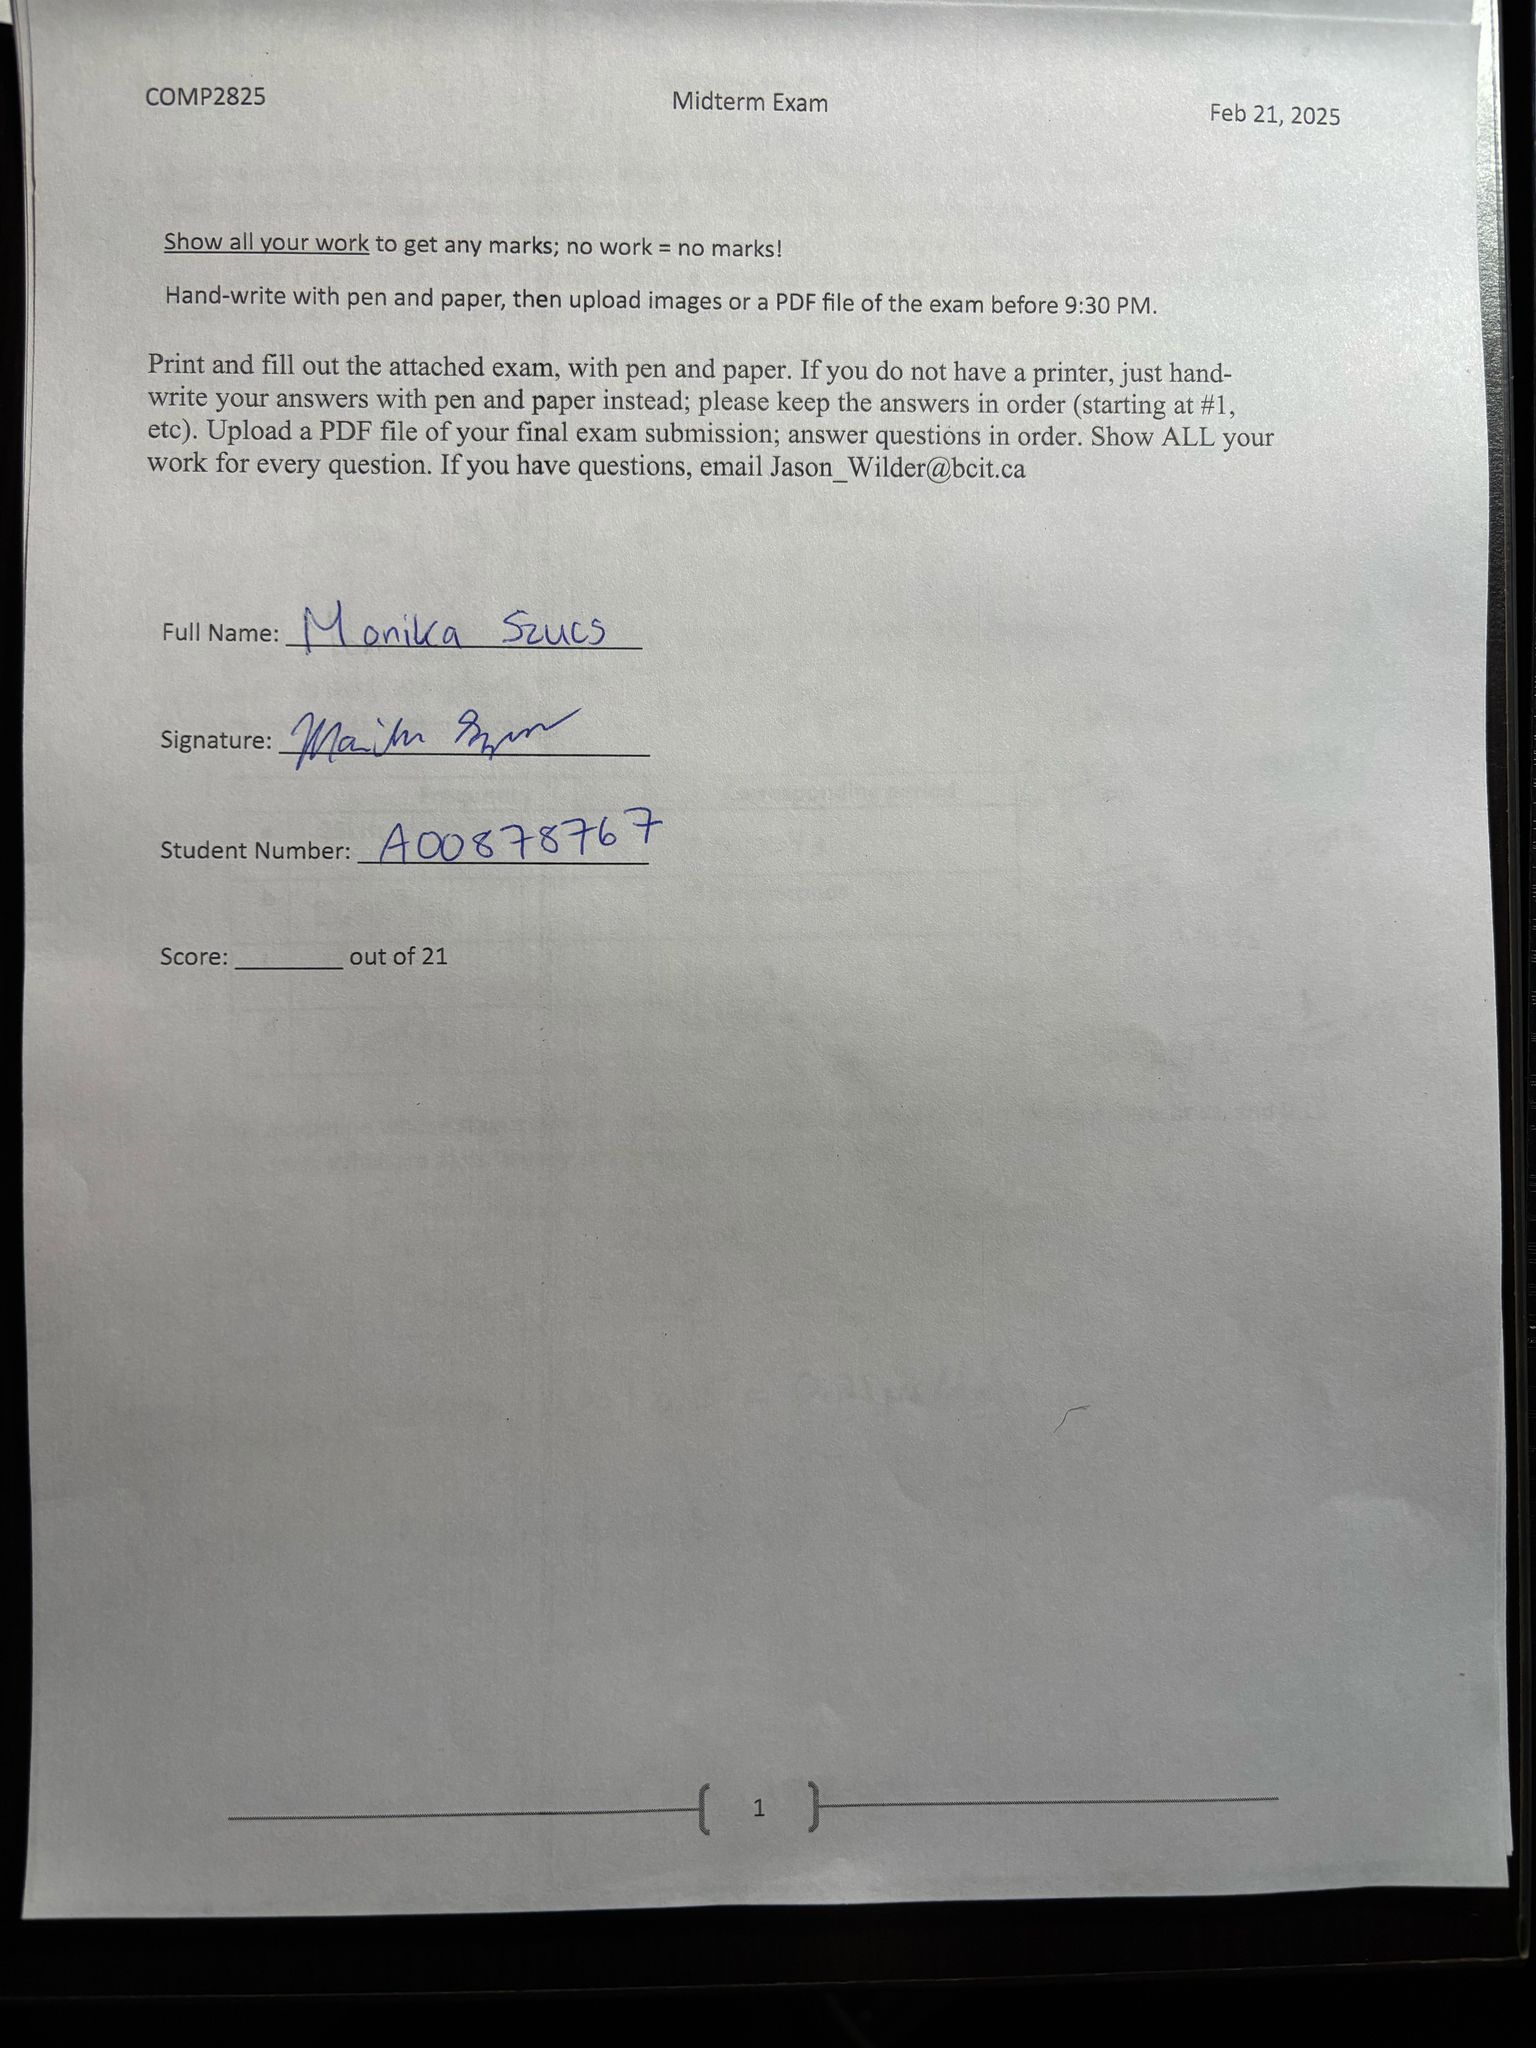 COMP2825 Midterm Exam Feb 21, 2025
Show all your work to get any marks; no work = no marks!
Hand-write with pen and paper, then upload images or a PDF file of the exam before 9:30 PM.
Print and fill out the attached exam, with pen and paper. If you do not have a printer, just hand-
write your answers with pen and paper instead; please keep the answers in order (starting at #1,
etc). Upload a PDF file of your final exam submission; answer questions in order. Show ALL your
work for every question. If you have questions, email Jason_Wilder@bcit.ca
Full Name: Monika Szucs
Signature:
Student Number: A00878767
Score: ________ out of 21
1